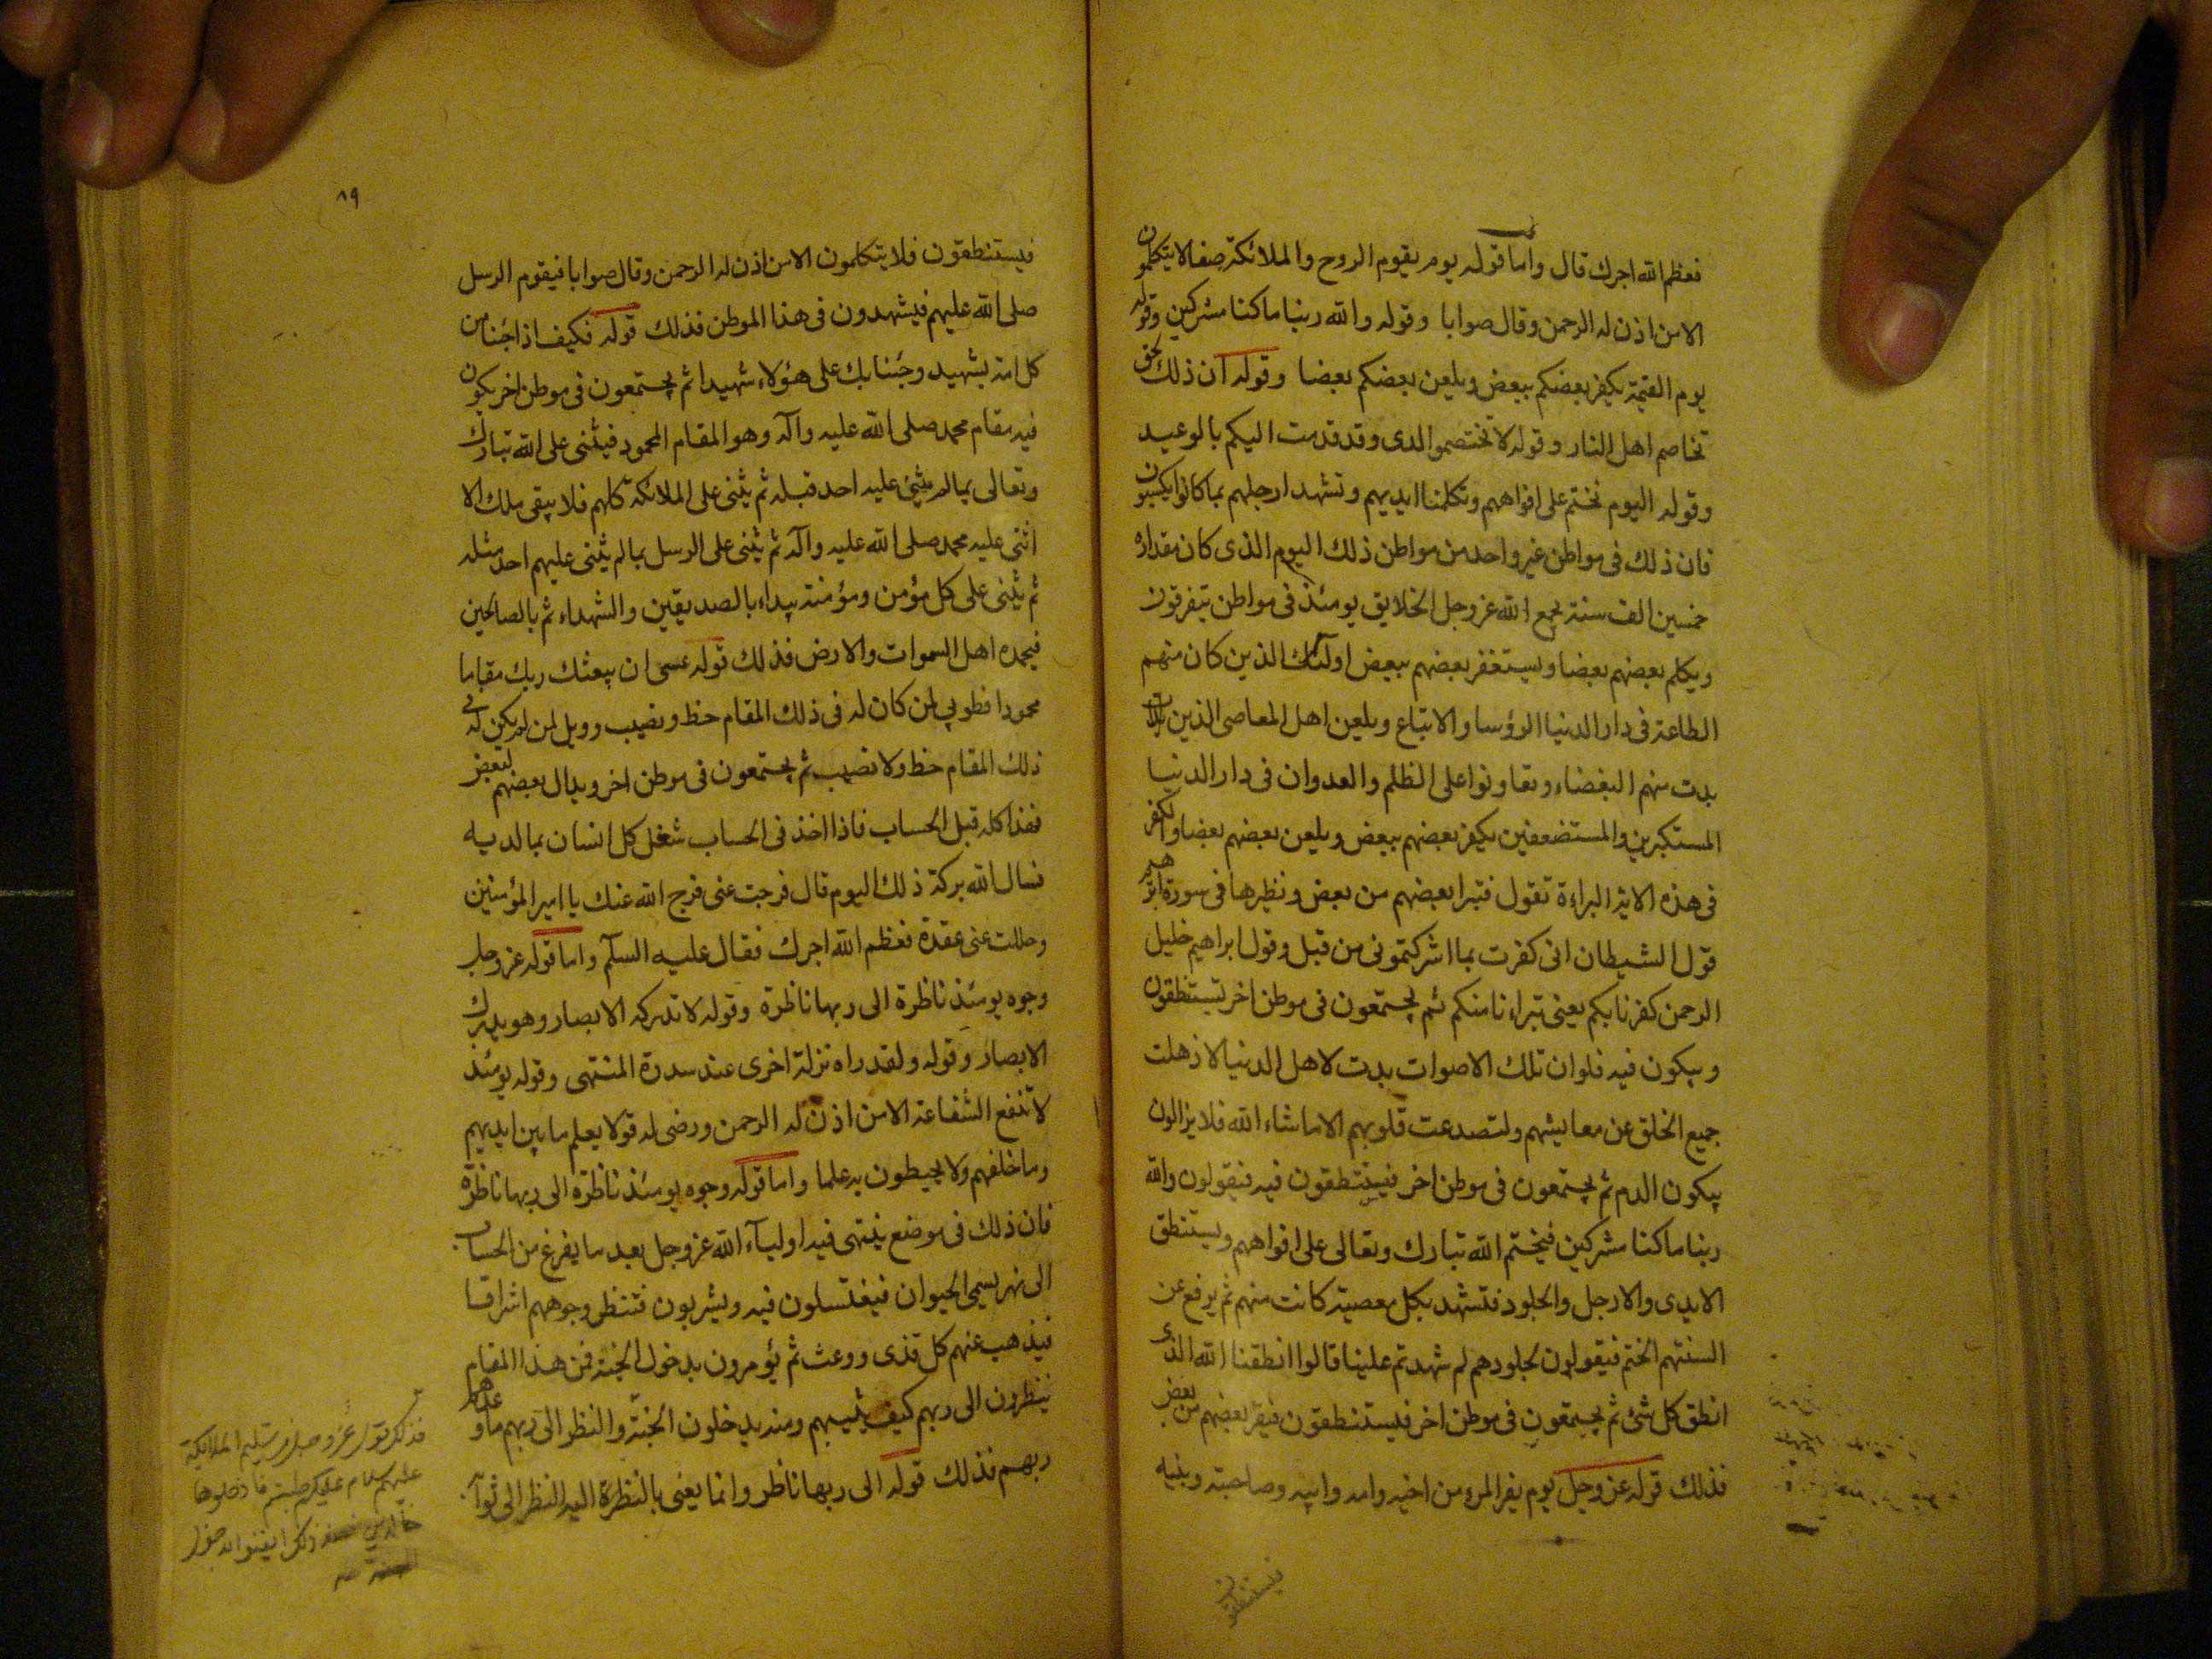 فعظم الله اجرك قال واما قوله يوم يقوم الروح والملائكة صفا لا يتكلمون
الا من اذن له الرحمن وقال صوابا وقوله والله ربنا ما كنا مشركين وقوله
يوم القيمة يكفر بعضكم ببعض ويلعن بعضكم بعضا وقوله ان ذلك لحق
تخاصم اهل النار وقوله لا تختصموا لدى وقد قدمت اليكم بالوعيد
وقوله اليوم نختم على افواههم وتكلمنا ايديهم وتشهد ارجلهم بما كانوا يكسبون
فان ذلك فى مواطن غير واحد من مواطن ذلك اليوم الذى كان مقداره
خمسين الف سنة يجمع الله عز وجل الخلايق يومئذ فى مواطن يتفرقون
ويكلم بعضهم بعضا ويستغفر بعضهم ببعض اولئك الذين كان منهم
الطاعة فى دار الدنيا الرؤسا والاتباع ويلعن اهل المعاصى الذين
بدت منهم البغضاء وتعاونوا على الظلم والعدوان فى دار الدنيا
المستكبرين والمستضعفين يكفر بعضهم ببعض ويلعن بعضهم بعضا والكفر
فى هذه الاية البراءة تقول فتبرا بعضهم من بعض ونظيرها فى سورة ابرهيم
قول الشيطان انى كفرت بما اشركتمونى من قبل وقول ابراهيم خليل
الرحمن كفرنا بكم يعنى تبرانا منكم ثم يجتمعون فى موطن اخر يستنطقون
ويبكون فيه فلو ان تلك الاصوات بدت لاهل الدنيا لاذهلت
جميع الخلق عن معايشهم ولتصدعت قلوبهم الا ما شاء الله فلا يزالون
يبكون الدم ثم يجتمعون فى موطن اخر فيستنطقون فيه فيقولون والله
ربنا ما كنا مشركين فيختم الله تبارك وتعالى على افواههم ويستنطق
الايدى والارجل والجلود فتشهد بكل معصية كانت منهم ثم يرفع عن
السنتهم الختم فيقولون لجلودهم لم شهدتم علينا قالوا انطقنا الله الذى
انطق كل شئ ثم يجتمعون فى موطن اخر فيستنطقون فيفر بعضهم من بعض
فذلك قوله عز وجل يوم يفر المرء من اخيه وامه وابيه وصاحبته وبنيه
فيستنطقون
٨٩
فيستنطقون فلا يتكلمون الا من اذن له الرحمن وقال صوابا فيقوم الرسل
صلى الله عليهم فيشهدون فى هذا الموطن فذلك قوله فكيف اذا جئنا من
كل امة بشهيد وجئنا بك على هؤلاء شهيدا ثم يجتمعون فى موطن اخر يكون
فيه مقام محمد صلى الله عليه وآله وهو المقام المحمود فيثنى على الله تبارك
وتعالى بما لم يثنى عليه احد قبله ثم يثنى على الملائكة كلهم فلا يبقى ملك الا
اثنى عليه محمد صلى الله عليه وآله ثم يثنى على الرسل بما لم يثنى عليهم احد مثله
ثم يثنى على كل مؤمن ومؤمنة يبداء بالصديقين والشهداء ثم بالصالحين
فيحمده اهل السموات والارض فذلك قوله عسى ان يبعثك ربك مقاما
محمودا فطوبى لمن كان له فى ذلك المقام حظ ونصيب وويل لمن لم يكن له فى
ذلك المقام حظ ولا نصيب ثم يجتمعون فى موطن اخر ويدال بعضهم لبعض
فهذا كله قبل الحساب فاذا اخذ فى الحساب شغل كل انسان بما لديه
نسال الله بركة ذلك اليوم قال فرجت عنى فرج الله عنك يا امير المؤمنين
وحللت عنى عقدة فعظم الله اجرك فقال عليه السلم واما قوله عز وجل
وجوه يومئذ ناظرة الى ربها ناظرة وقوله لا تدركه الابصار وهو يدرك
الابصار وقوله ولقد راه نزلة اخرى عند سدرة المنتهى وقوله يومئذ
لا تنفع الشفاعة الا من اذن له الرحمن ورضى له قولا يعلم ما بين ايديهم
وما خلفهم ولا يحيطون به علما واما قوله وجوه يومئذ ناظرة الى ربها ناظرة
فان ذلك فى موضع ينتهى فيه اولياء الله عز وجل بعد ما يفرغ من الحساب
الى نهر يسمى الحيوان فيغتسلون فيه ويشربون فتنظر وجوههم اشراقا
فيذهب عنهم كل قذى ووعث ثم يؤمرون بدخول الجنة فمن هذا المقام
ينظرون الى ربهم كيف يثيبهم ومنه يدخلون الجنة والنظر الى ربهم ما وعدهم
ربهم فذلك قوله الى ربها ناظر وانما يعنى بالنظرة اليه النظر الى ثواب
فذلك قوله عز وجل من تسليم الملائكة
عليهم سلام عليكم طبتم فادخلوها
خالدين فعند ذلك ايقنوا بدخول
الجنة